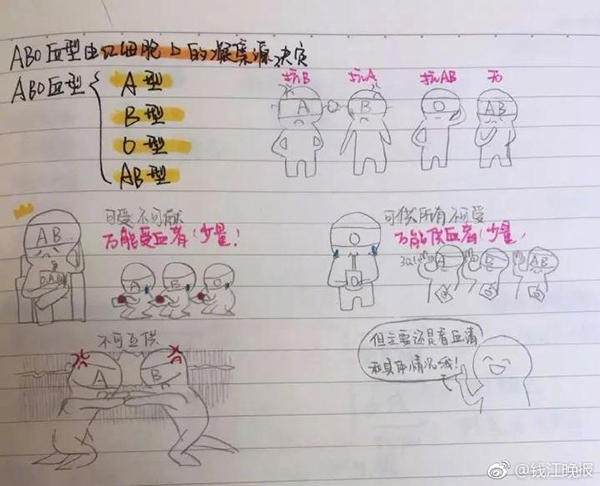 ABO血型由红细胞上的凝集源决定
ABO血型
A型
B型
O型
AB型
抗B 抗A 抗AB 无
A B O AB
可受不可献
万能受血者(少量!
AB
O.A.B
A B O
可供所有不可受
万能供血者(少量!
O
A B AB
不可互供
A B
但主要还是看血清
和具体情况哦!
@钱江晚报